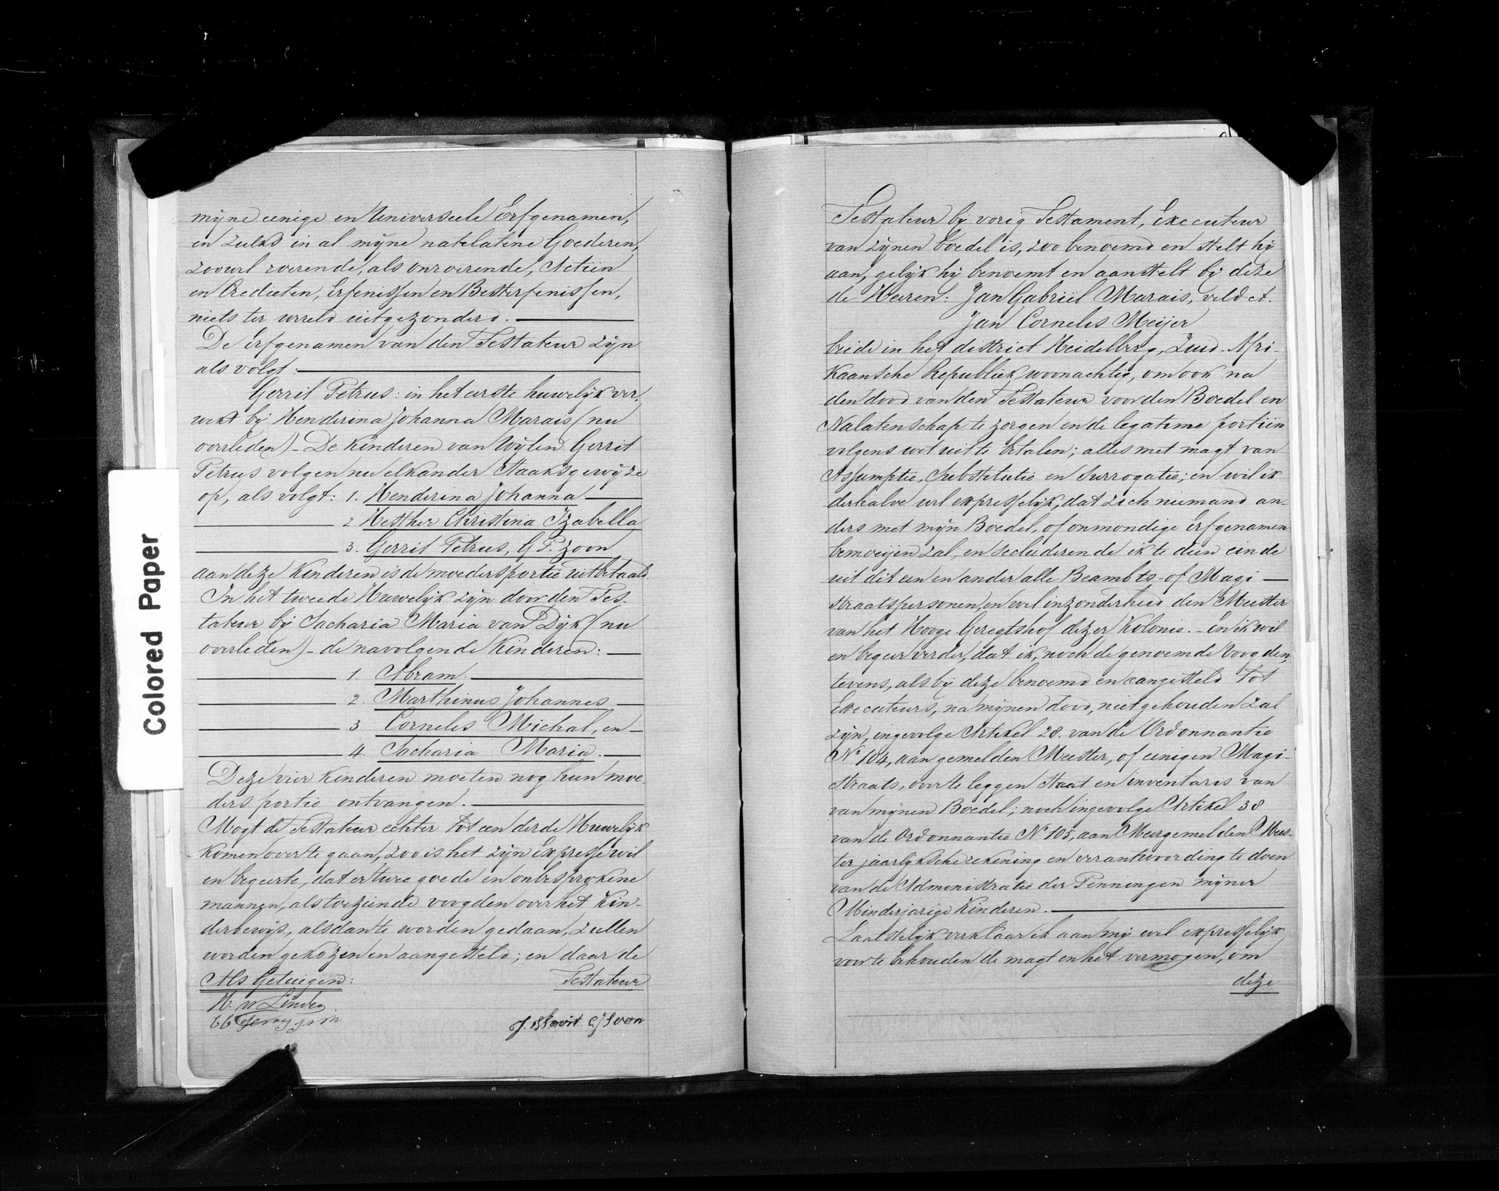 mijne eenige en Universeele Erfgenamen,
en zulks in al mijne natelatene Goederen,
zoowel roerende, als onroerende, Actien
en Credieten, Erfenissen en Besterfenissen,
niets ter wereld uitgezonderd.
De Erfgenamen van den Testateur zijn
als volgt:
Gerrit Petrus: in het eerste huwelijk ver
wekt bij Henderina Johanna Marais (nu
overleden) - De Kinderen van Wijlen Gerrit
Petrus volgen nu elkander Staaksgewijze
op, als volgt: 1. Henderina Johanna
2 Hesther Christina Izabella
3. Gerrit Petrus, G P. zoon
aan deze Kinderen is de moedersportie uitbetaald
In het tweede Huwelijk zijn door den Tes-
tateur bij Sacharia Maria van Dijk (nu
overleden) - de navolgende Kinderen:
1. Abram
2 Marthinus Johannes
3 Cornelis Michal, en
4 Sacharia Maria.
Deze vier Kinderen moeten nog hun moe
ders portie ontvangen.
Mogt de Testateur echter tot een derde Huwelijk
komen over te gaan, zoo is het zijn Expresse wil
en begeerte, dat er twee goede en onbesprokene
mannen, als toeziende voogden over het Kin-
derbewijs, alsdan te worden gedaan, zullen
worden gekozen en aangesteld; en daar de
Als Getuigen: Testateur
Colored Paper
Testateur by vorig Testament, Executeur
van zijnen boedel is, zoo benoemd en stelt hij
aan, gelijk hij benoemt en aanstelt bij deze
de Heeren: Jan Gabriël Marais, veld ct.
Jan Cornelis Meijer
beide in het district Heidelberg, Zuid-Afri-
kaansche Republiek woonachtig, om ook na
den dood van den Testateur voor den Boedel en
Nalatenschap te zorgen en de legatime portiën
volgens wet uit te betalen; alles met magt van
Assumptie, Substitutie en Surrogatie; en wil ik
derhalve wel expresselijk, dat zich niemand an-
ders met mijn Boedel, of onmondige Erfgenamen
bemoeijen zal, en secluderende ik te dien einde
uit dit een en ander alle Beambts- of Magi
straatspersonen, en wel inzonderheid den Meester
van het Hooge Geregtshof dezer Kolonie. - En ik wil
en begeer verder, dat ik, noch de genoemde Voogden,
tevens, als bij deze benoemd en aangesteld tot
Executeurs, na mijnen dood, niet gehouden zal
zijn, ingevolge Artikel 28 van de Ordonnantie
No 104, aan gemelden Meester, of eenigen Magi-
straat, over te leggen Staat en inventaris van
van mijnen Boedel; noch ingevolge Artikel 38
van de Ordonnantie No 105, aan Meergemelden Mees-
ter jaarlijksche rekening en verantwoording te doen
van de Administratie der Penningen mijner
Minderjarige Kinderen.
Laatstelijk verklaar ik aan mij wel expresselijk
voor te behouden de magt en het vermogen, om
deze